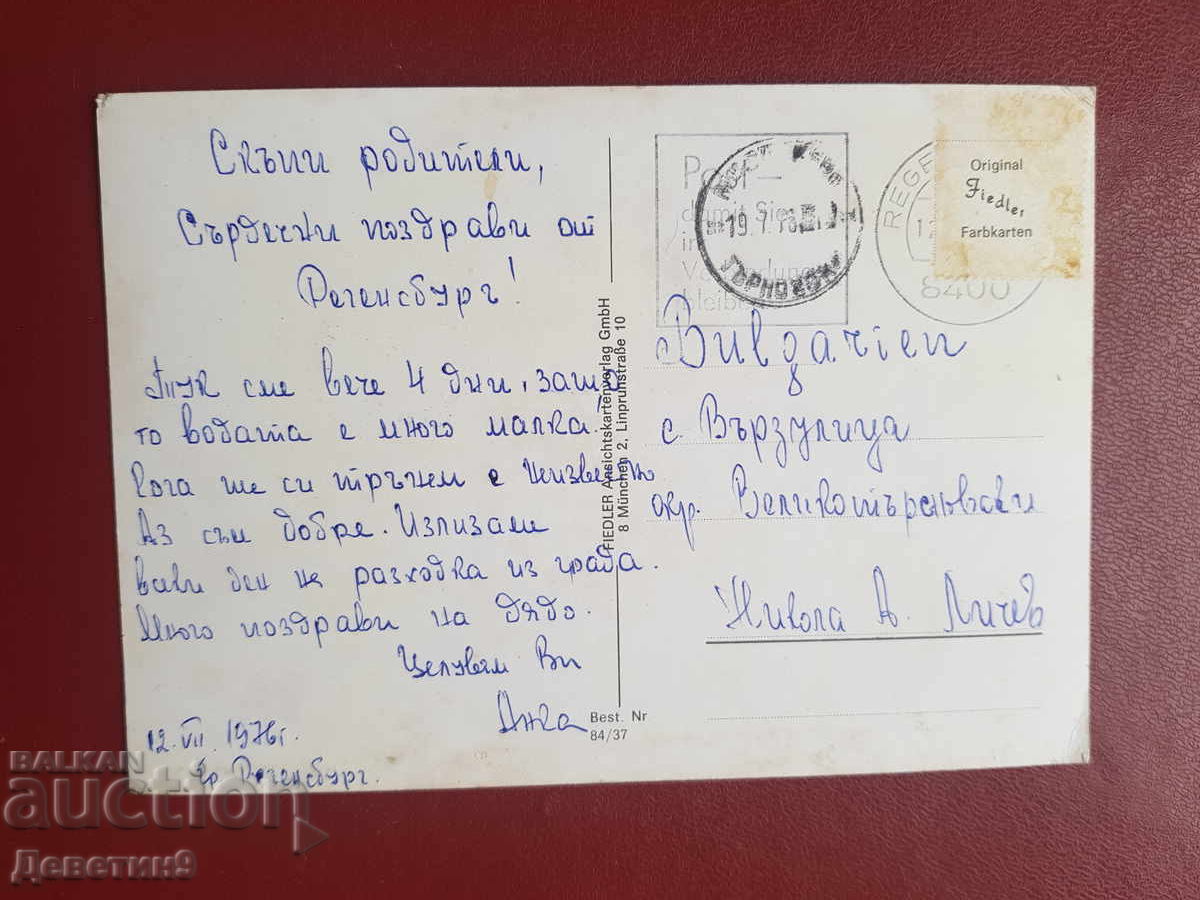 Скъпи родители,
Сърдечни поздрави от
Регенсбург!
Тук сме вече 4 дни, защо
то водата е много малка!
Кога ще си тръгнем е неизвестно
Аз съм добре. Излизаме
всеки ден на разходка из града.
Много поздрави на дядо.
Целувам Ви
Анка
12.VII.1976г.
гр. Регенсбург.
FIEDLER Ansichtskartenverlag GmbH
8 München 2, Linprunstraße 10
Best. Nr
84/37
Post—
damit Sie
in
bleiben
19.7.76
ТЪРНОВСКИ
REGE
8400
Original
Fiedler
Farbkarten
Bulgarien
с. Върzулица
окр. Великотърновски
Никола А. Личев
BALKAN
auction
Деветин9